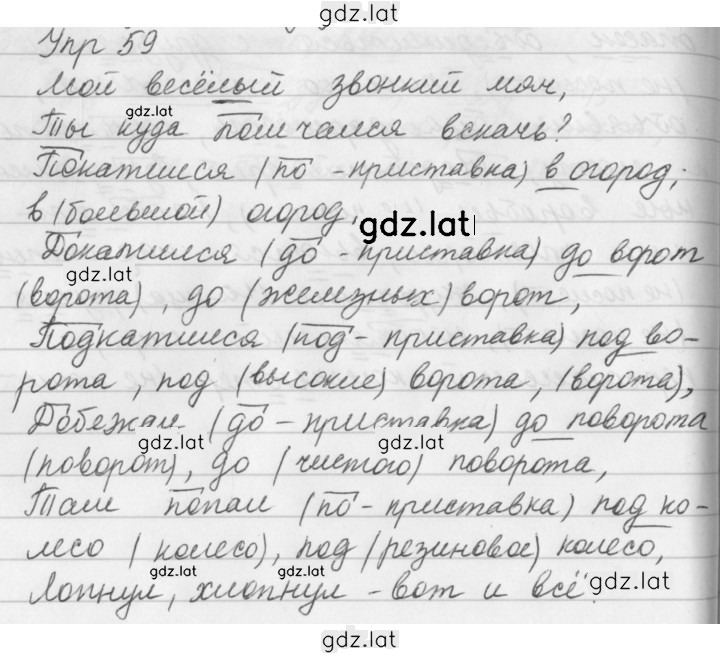 gdz.lat
Упр 59
Мой весёлый звонкий мяч,
gdz.lat
Ты куда помчался вскачь?
gdz.lat
Покатился (по - приставка) в огород;
в (большой) огород,
gdz.lat
Докатился (до - приставка) до ворот
gdz.lat
(ворота), до (железных) ворот,
Подкатился (под - приставка) под во-
рота, под (высокие) ворота, (ворота),
Добежал (до - приставка) до поворота
gdz.lat gdz.lat
(поворот), до (чистого) поворота,
Там попал (по - приставка) под ко-
gdz.lat
лесо (колесо), под (резиновое) колесо,
gdz.lat gdz.lat gdz.lat
Лопнул, хлопнул - вот и всё.
gdz.lat